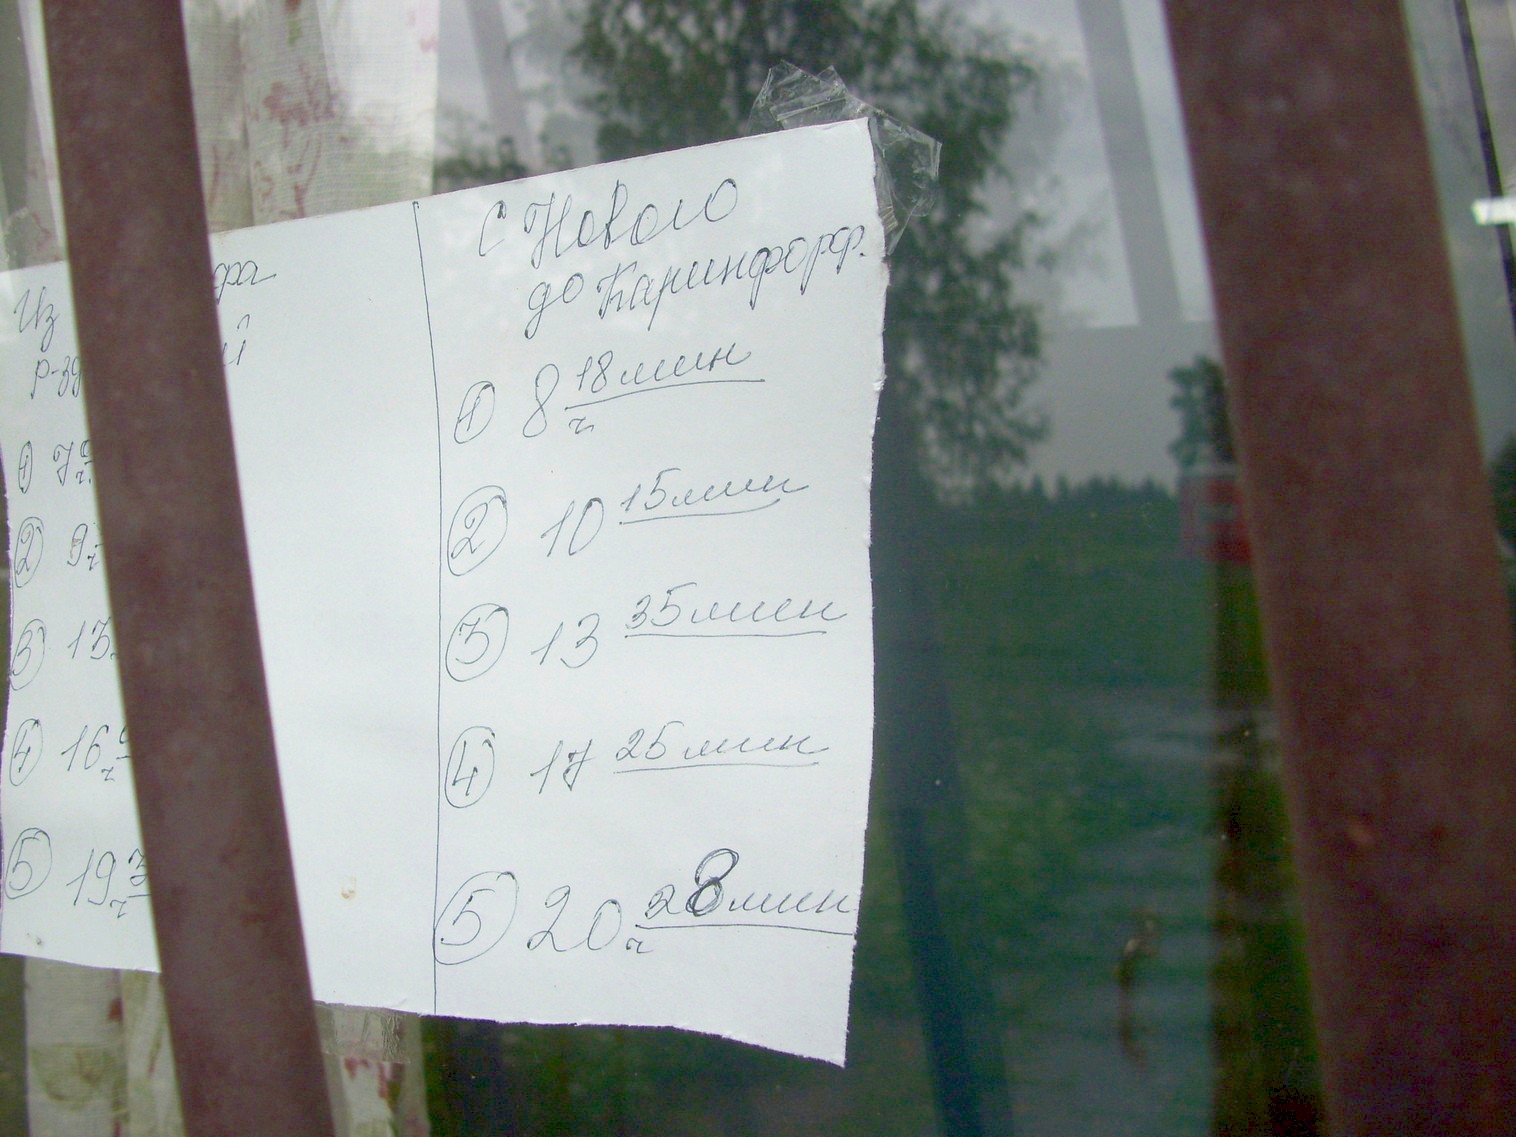 Из
р-зд
① 7 ч
② 9 ч
③ 13
④ 16 ч
⑤ 19 ч
С Нового
до Каринфорф.
① 8 ч 18 мин
② 10 15 мин
③ 13 35 мин
④ 17 25 мин
⑤ 20 ч 28 мин